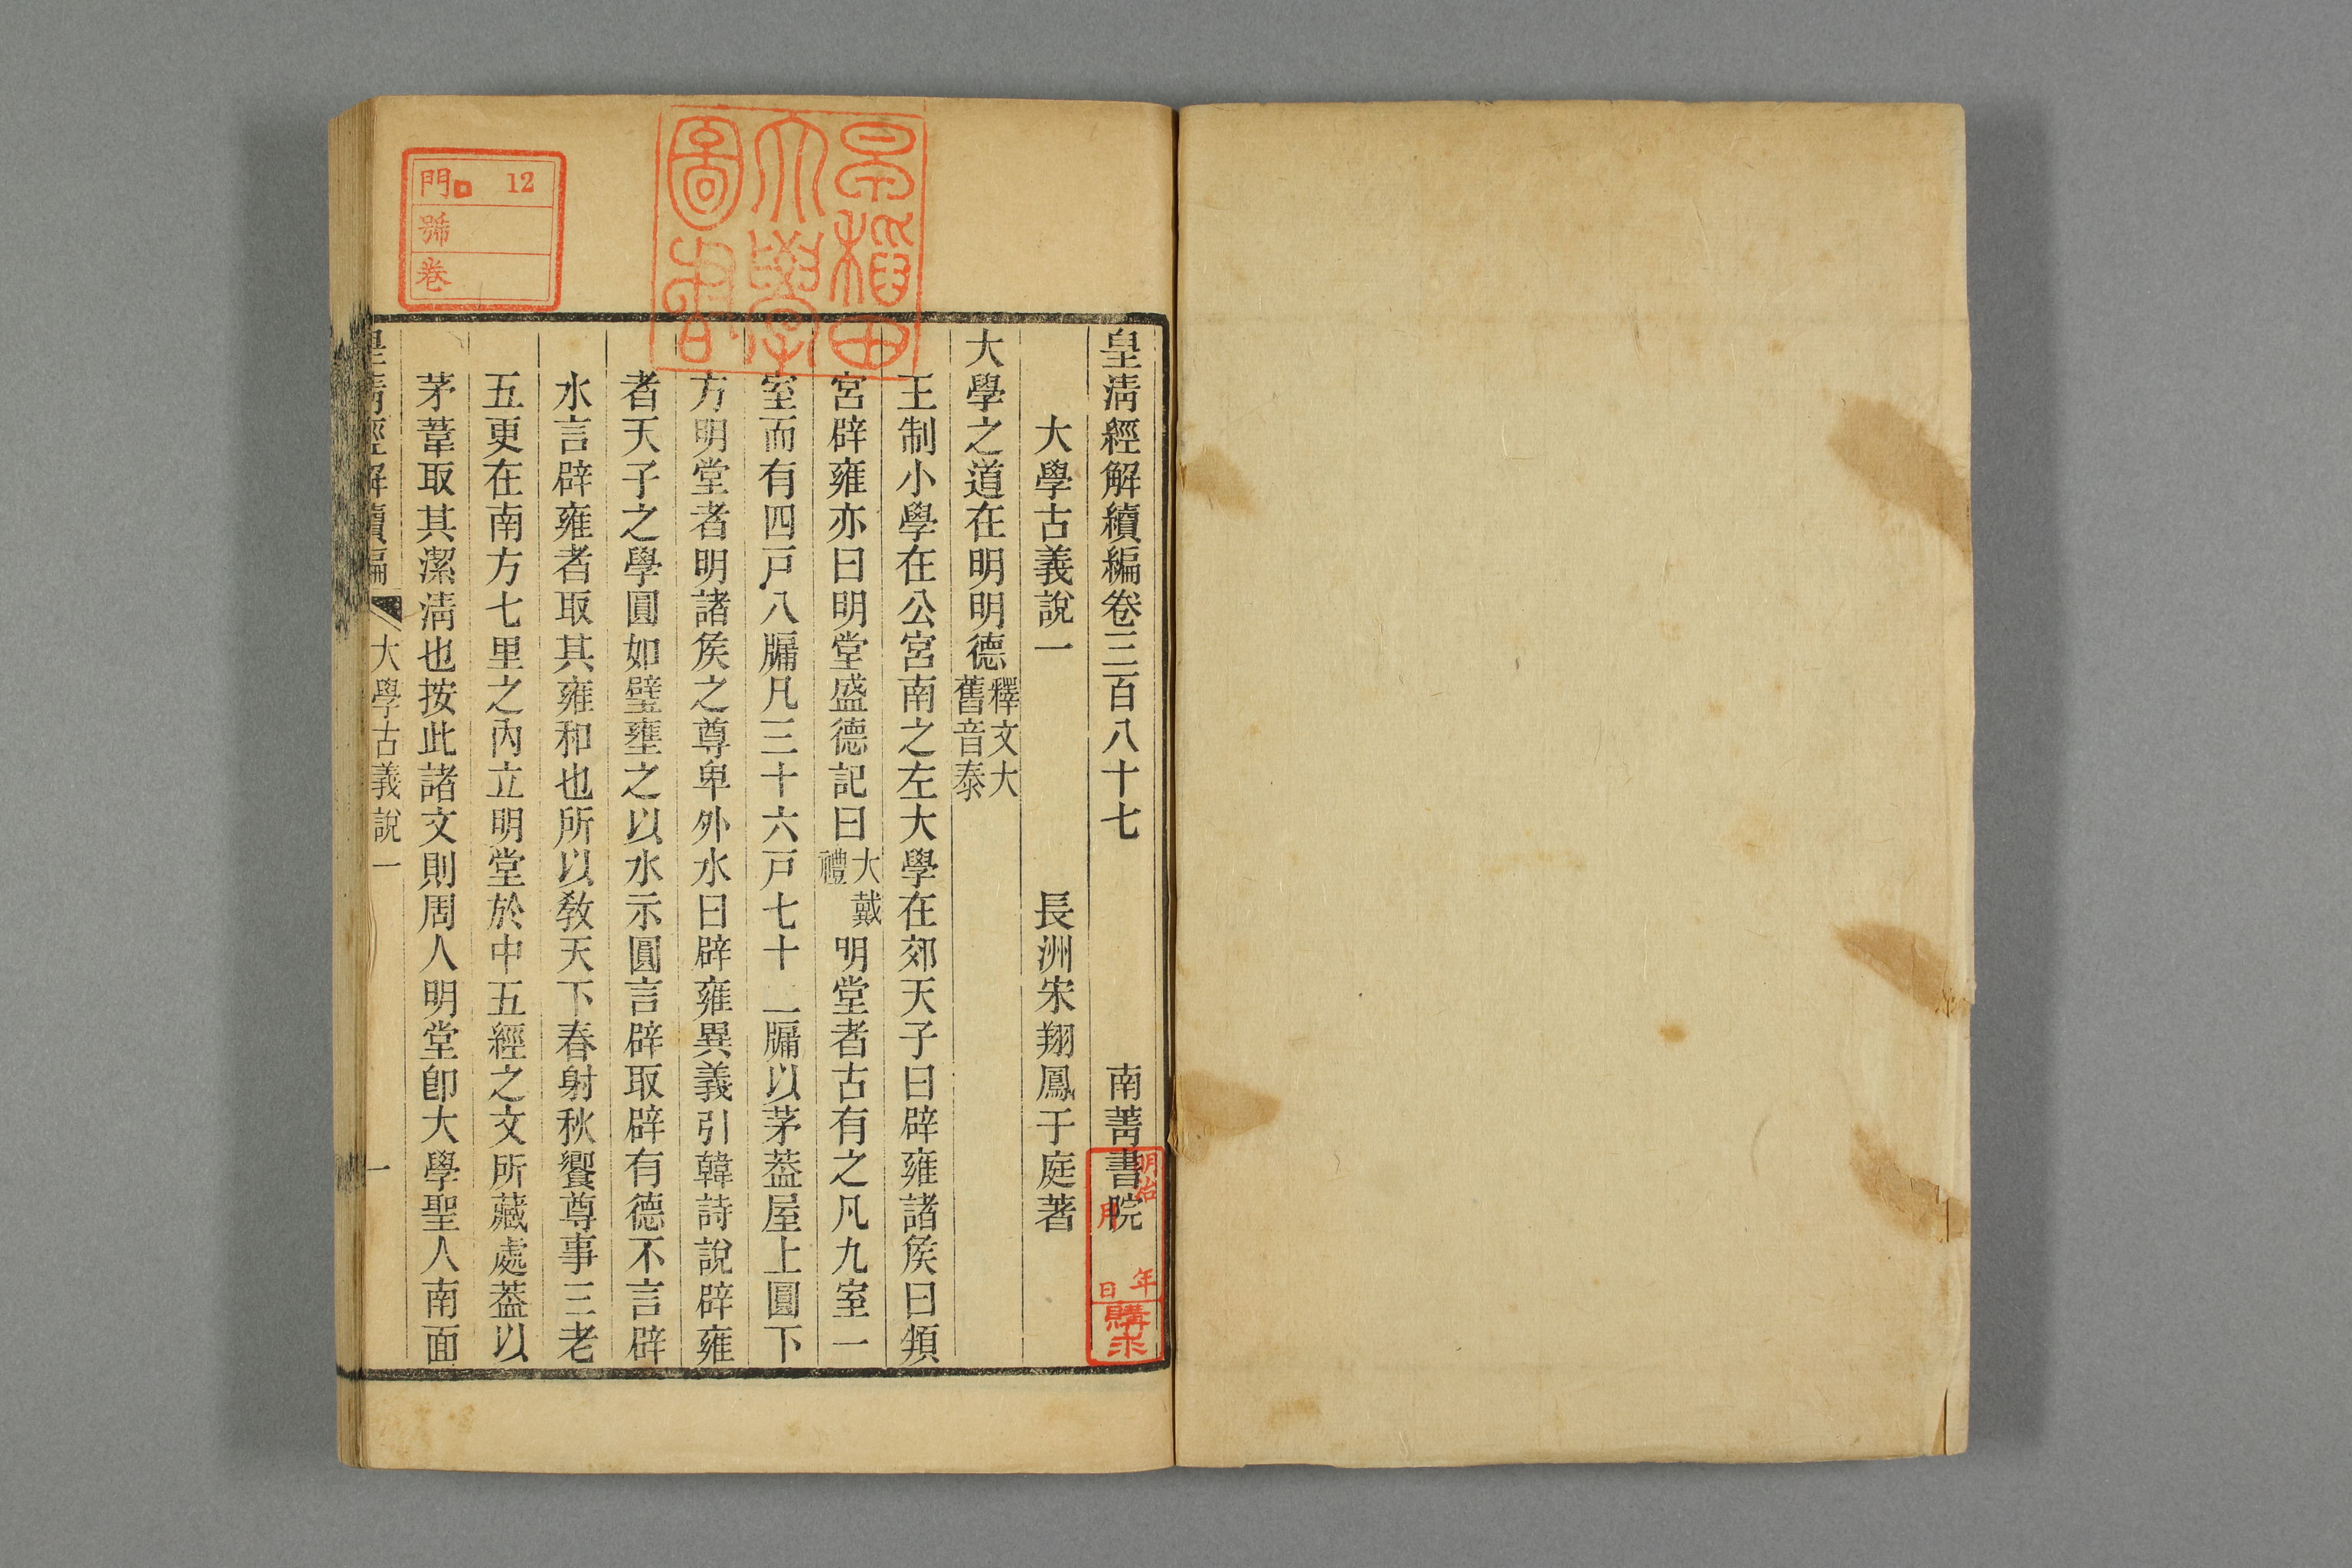 皇清經解續編卷三百八十七 南菁書院
大學古義說一 長洲宋翔鳳于庭著
大學之道在明明德釋文大舊音泰
王制小學在公宮南之左大學在郊天子曰辟雍諸侯曰頖
宮辟雍亦曰明堂盛德記曰大戴禮明堂者古有之凡九室一
室而有四戸八牖凡三十六戸七十二牖以茅葢屋上圓下
方明堂者明諸侯之尊卑外水曰辟雍異義引韓詩說辟雍
者天子之學圓如璧壅之以水示圓言辟取辟有德不言辟
水言辟雍者取其雍和也所以敎天下春射秋饗尊事三老
五更在南方七里之內立明堂於中五經之文所藏處葢以
茅葦取其潔淸也按此諸文則周人明堂卽大學聖人南面
皇清經解續編 大學古義說一 一
早稻田大學圖書
門 12
號
卷
明治 年 月 日 購求